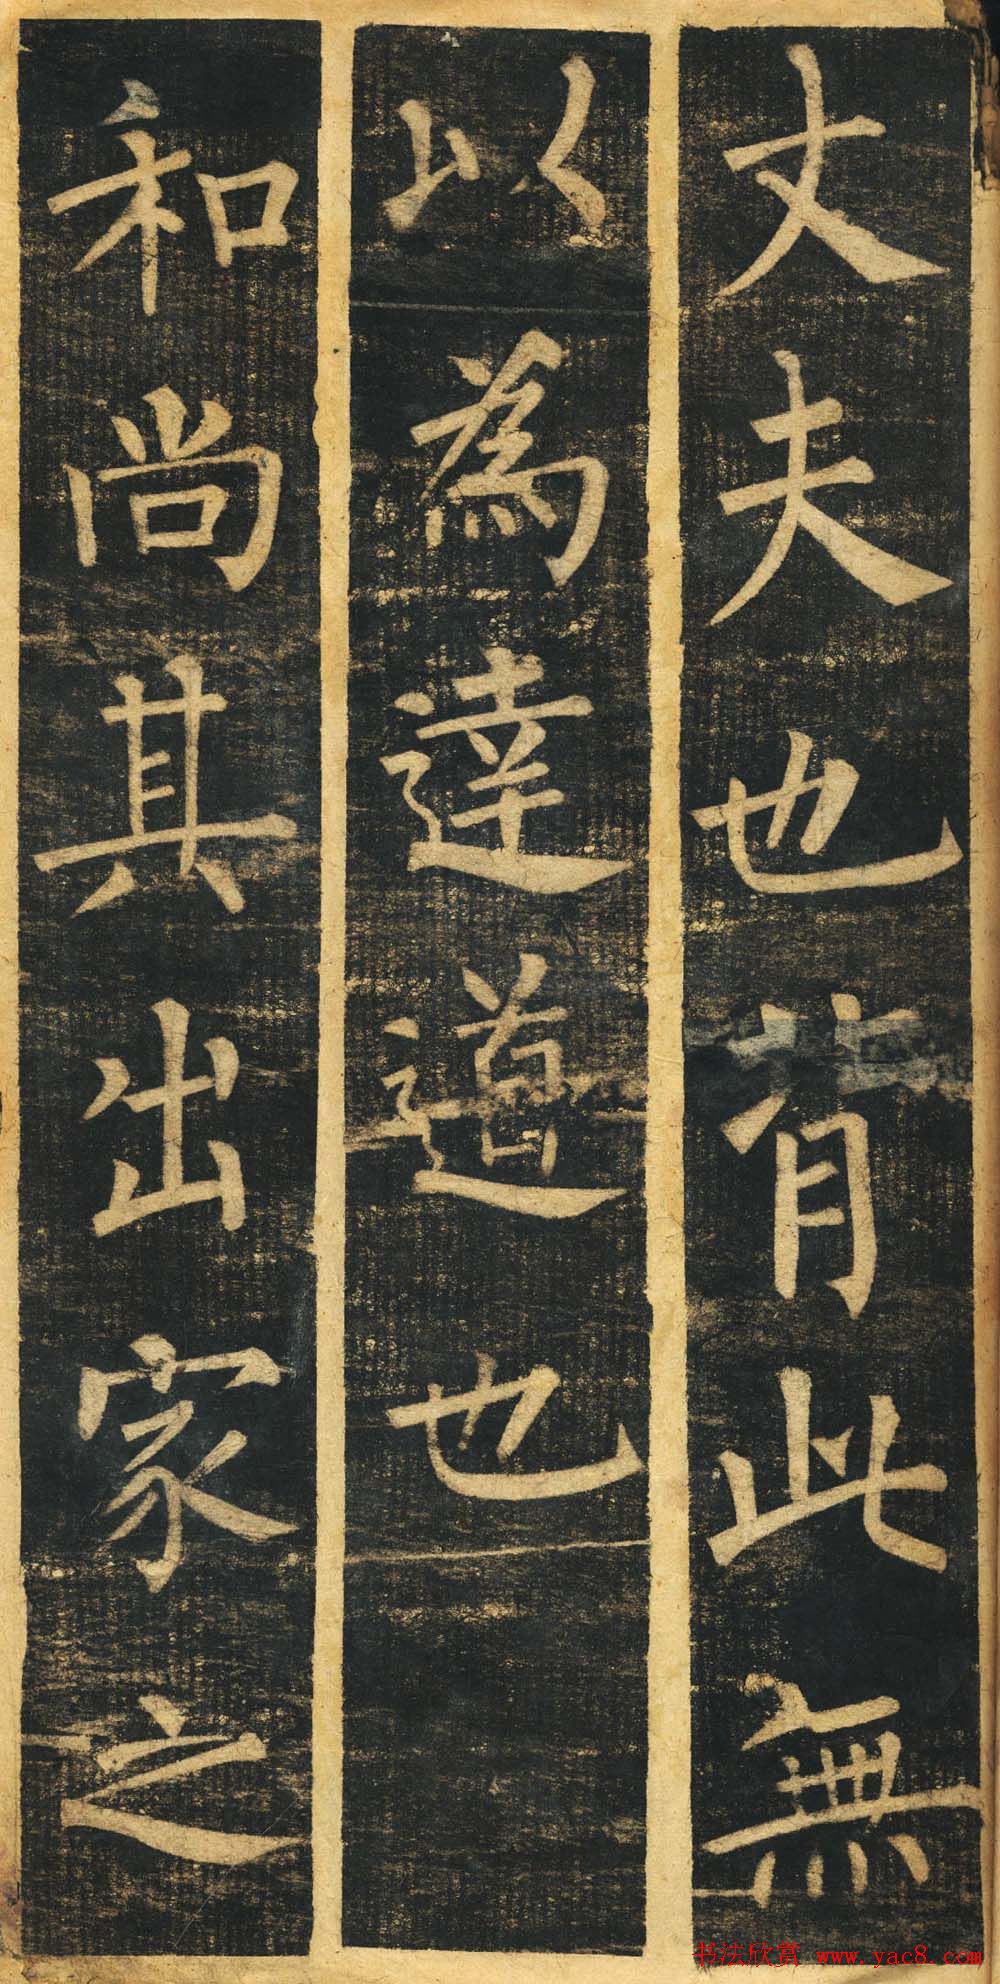 丈夫也背此無
以為達道也
和尚其出家之
书法欣赏 www.yac8.com